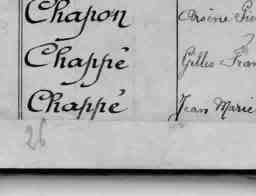 Chapon Arsène
Chappé Gilles Fran
Chappé Jean Marie
26